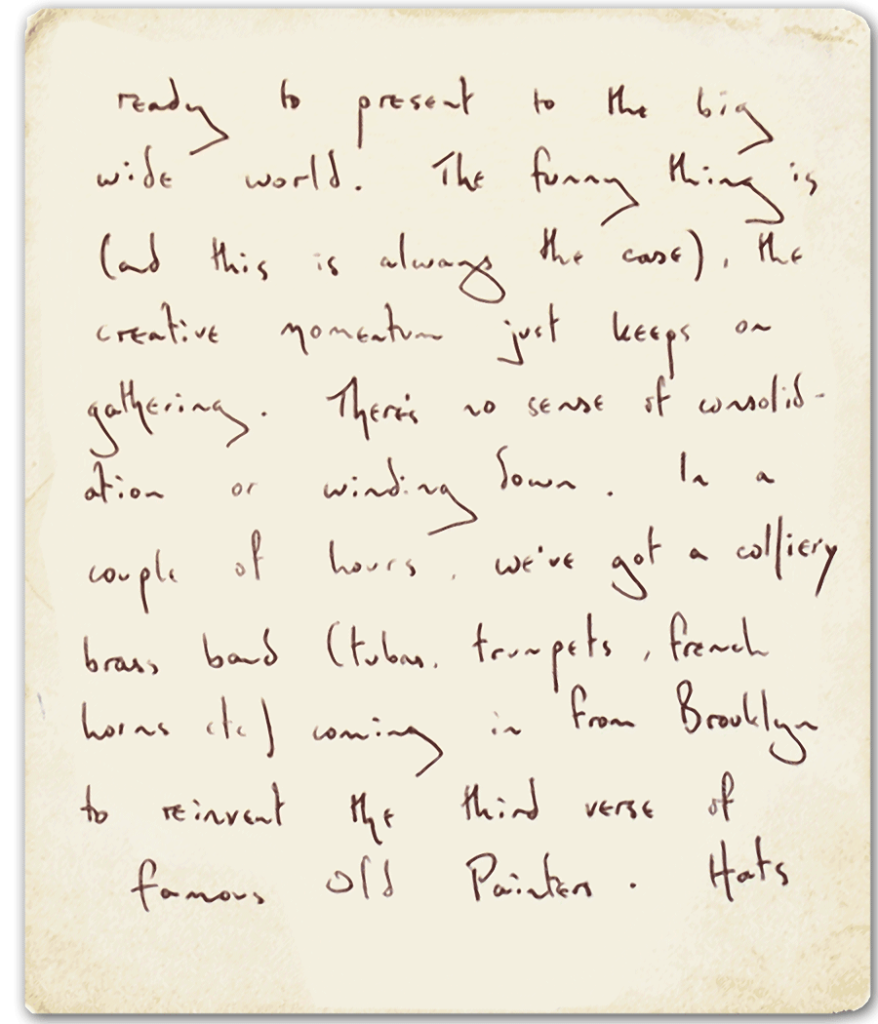 ready to present to the big
wide world. The funny thing is
(and this is always the case), the
creative momentum just keeps on
gathering. There's no sense of consolid-
ation or winding down. In a
couple of hours, we've got a colliery
brass band (tubas, trumpets, french
horns etc) coming in from Brooklyn
to reinvent the third verse of
famous old Painters. Hats